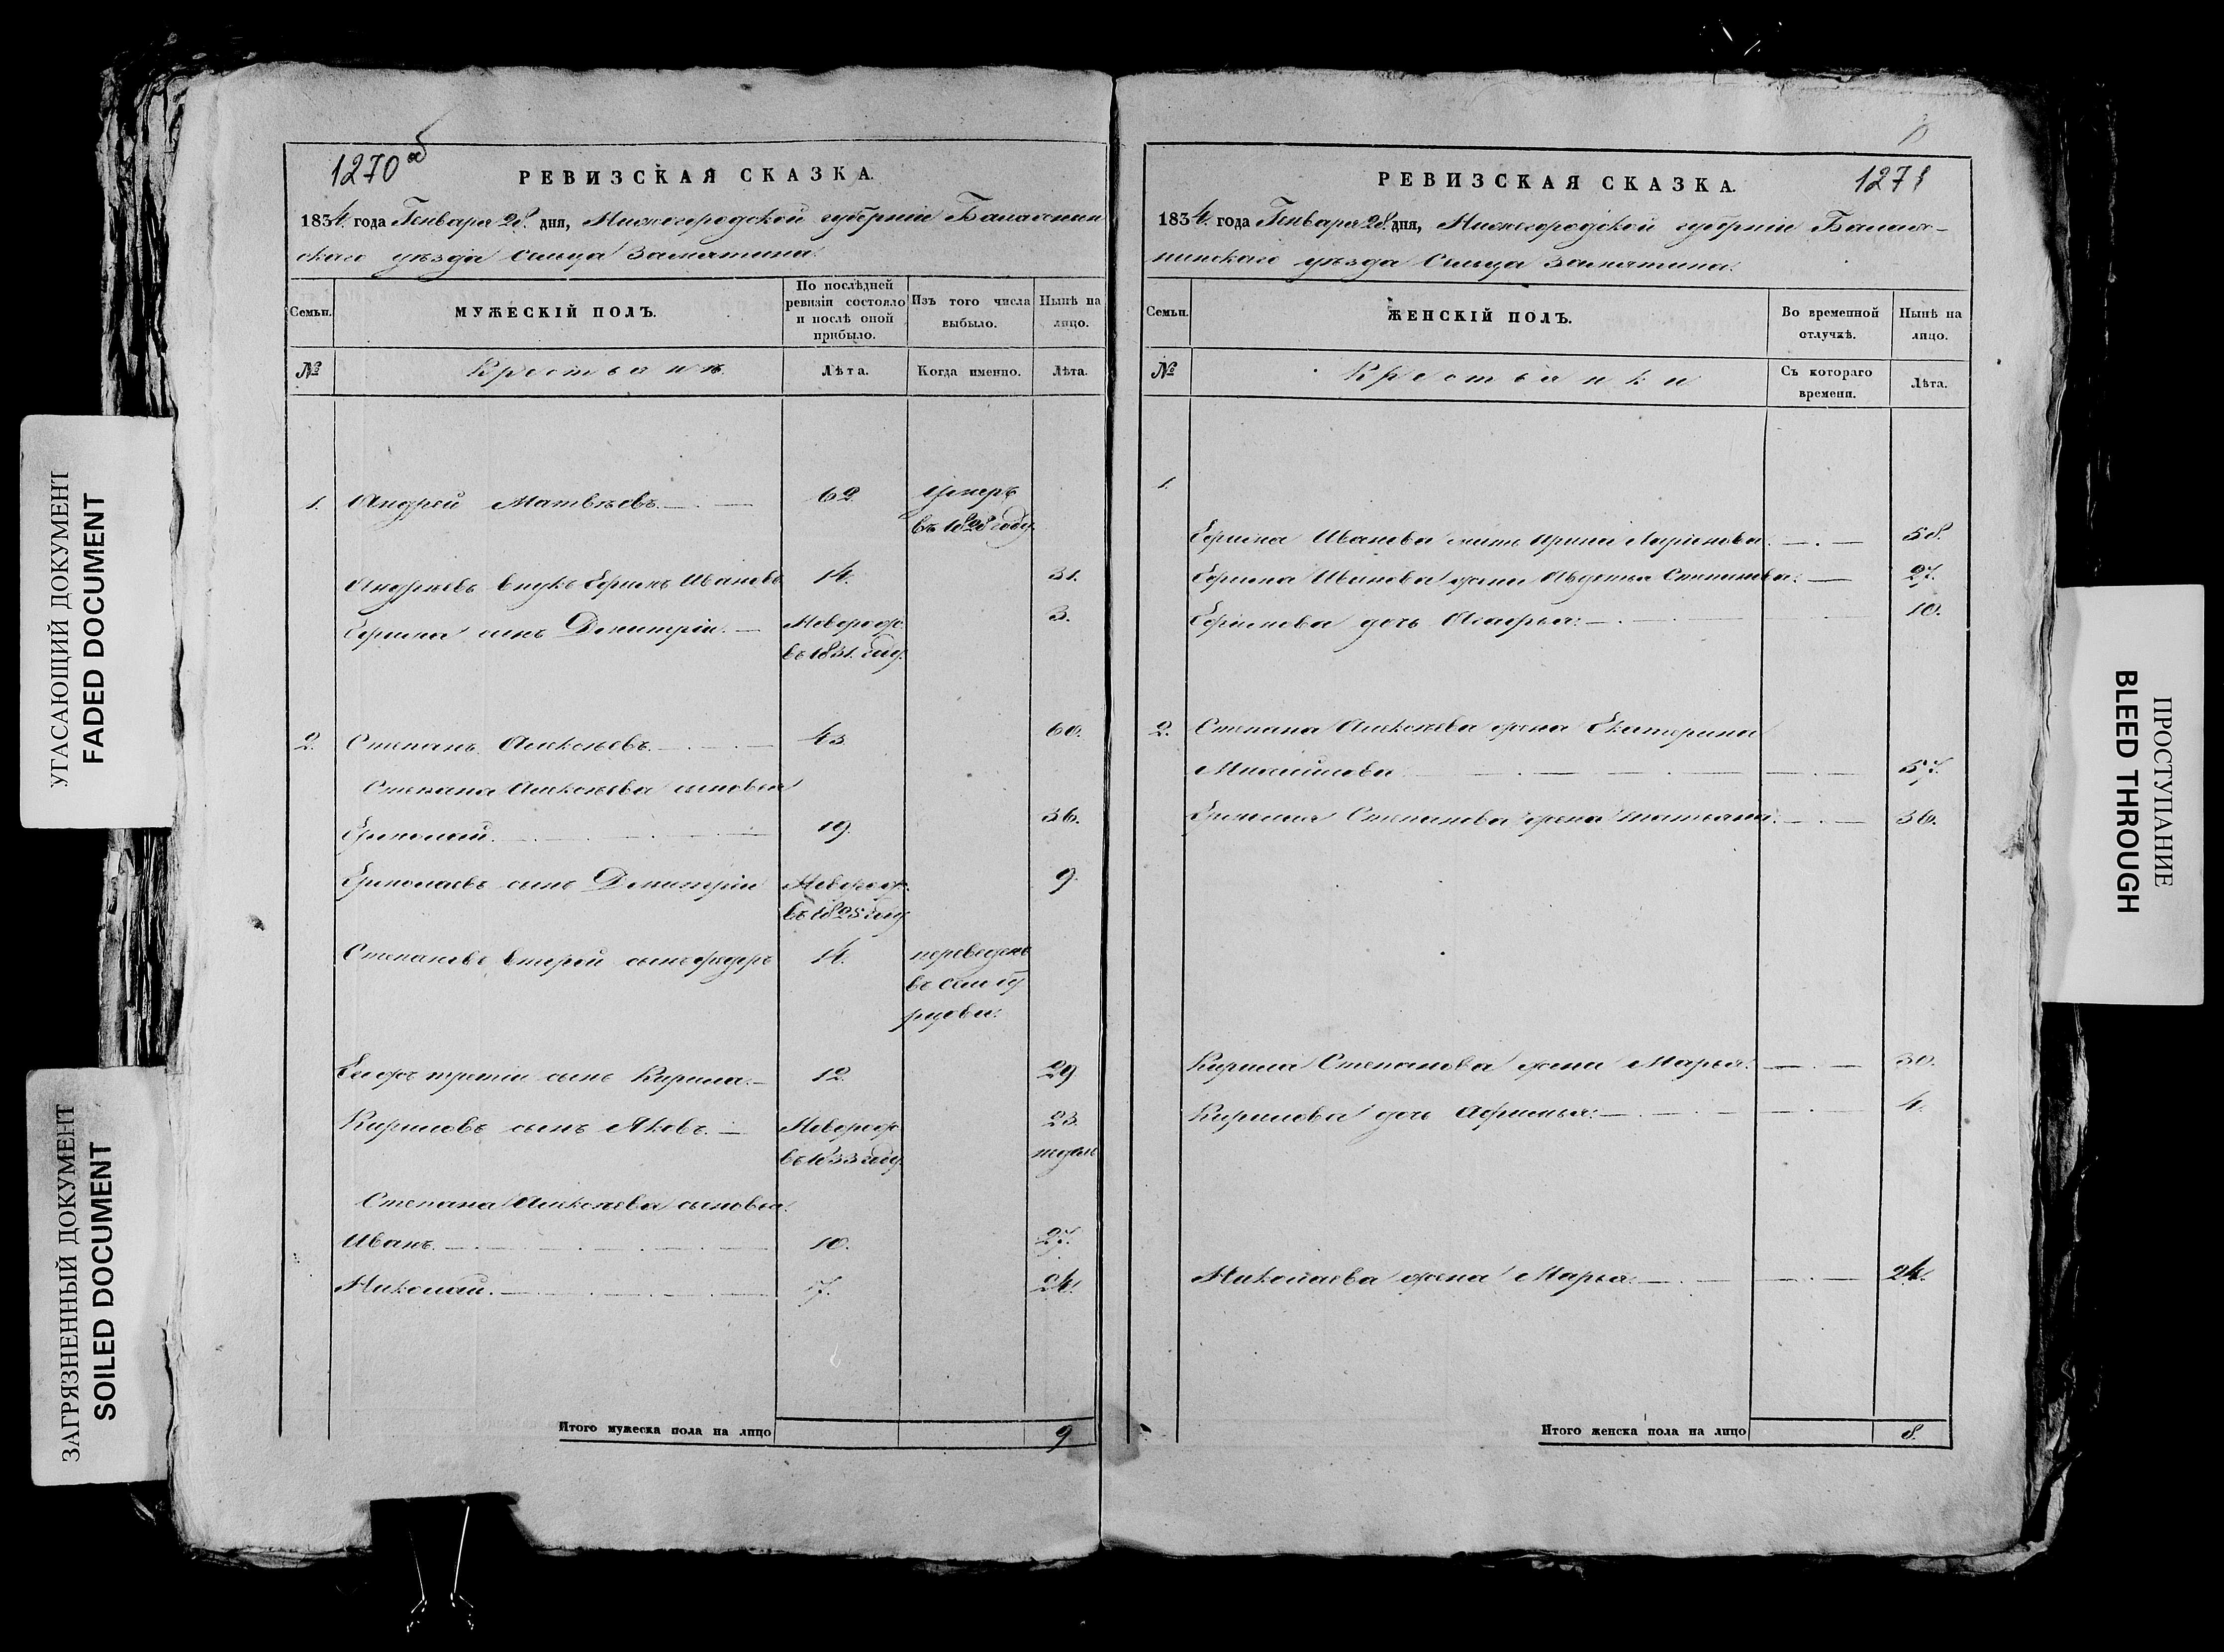 УГАСАЮЩИЙ ДОКУМЕНТ
FADED DOCUMENT
ЗАГРЯЗНЕННЫЙ ДОКУМЕНТ
SOILED DOCUMENT
1270 об
РЕВИЗСКАЯ СКАЗКА.
1834. года Генваря 28. дня, Нижегородской губерніи Балахнин
скаго уѣзда сельца Замятина.
Семьи.
МУЖЕСКІЙ ПОЛЪ.
По послѣдней ревизіи состояло и послѣ оной прибыло.
Изъ того числа выбыло.
Нынѣ на лицо.
№
Крестьянъ.
Лѣта.
Когда именно.
Лѣта.
1. Андрей Матвѣевъ. 62. умеръ
въ 1828 году.
Андрѣевъ внукъ Ефимъ Ивановъ 14. 31.
Ефима сынъ Дмитрій. Неворож. 3.
въ 1831. году.
2. Степанъ Алексѣевъ. 43 60.
Степана Алексѣева сыновья
Ермолай. 19. 36.
Ермолаевъ сынъ Дмитрій Новорож. 9.
въ 1825 году
Степановъ второй сынъ Федоръ 14. переведенъ
въ
Его же третій сынъ Кирила. 12. 29
Кириловъ сынъ Яковъ. Неворож. 23.
въ 1833 году. недѣль
Степана Алексѣева сыновья.
Иванъ. 10. 27.
Николай. 7. 24.
Итого мужеска пола на лицо 9
1271
РЕВИЗСКАЯ СКАЗКА.
1834. года Генваря 28. дня, Нижегородской губерніи Балах-
нинскаго уѣзда сельца Замятина.
Семьи.
ЖЕНСКІЙ ПОЛЪ.
Во временной отлучкѣ.
Нынѣ на лицо.
№
Крестьянки
Съ котораго времени.
Лѣта.
1.
Ефима Иванова мать Ирина Ларіонова. 58.
Ефима Иванова жена Авдотья Степанова. 27.
Ефимова дочь 10.
2. Степана Алексѣева жена Екатерина
57.
Ермолая Степанова жена Татьяна. 36.
Кирила Степанова жена Марья. 30.
Кирилова дочь Афимья. 4.
Николаева жена Марья. 24.
Итого женска пола на лицо 8.
ПРОСТУПАНИЕ
BLEED THROUGH